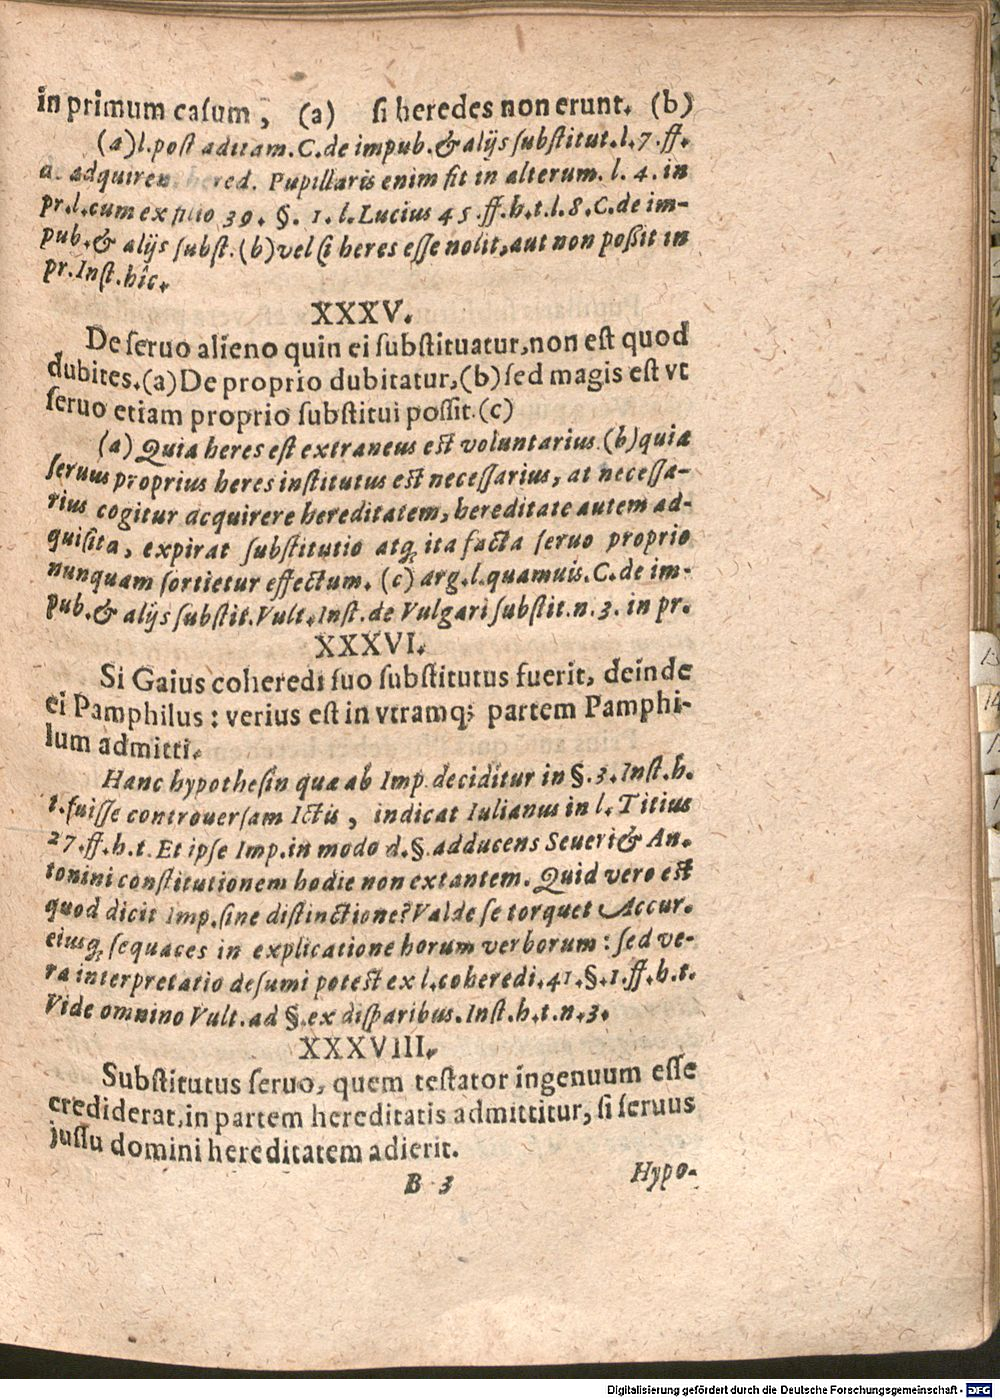 in primum casum, (a) si heredes non erunt. (b)
(a) l. post aditam. C. de impub. & alijs substitut. l. 7. ff.
d. adquiren. hered. Pupillaris enim fit in alterum. l. 4. in
pr. l. cum ex filio 39. §. 1. l. Lucius 45. ff. h. t. l. 8. C. de im-
pub. & alijs subst. (b) vel si heres esse nolit, aut non poßit in
pr. Inst. hîc.
XXXV.
De seruo alieno quin ei substituatur, non est quod
dubites. (a) De proprio dubitatur, (b) sed magis est vt
seruo etiam proprio substitui possit. (c)
(a) Quia heres est extraneus est voluntarius. (b) quia
seruus proprius heres institutus est necessarius, at necessa-
rius cogitur acquirere hereditatem, hereditate autem ad-
quisita, expirat substitutio atq; ita facta seruo proprio
nunquam sortietur effectum. (c) arg. l. quamuis. C. de im-
pub. & alijs substit. Vult. Inst. de Vulgari substit. n. 3. in pr.
XXXVI.
Si Gaius coheredi suo substitutus fuerit, deinde
ei Pamphilus: verius est in vtramq; partem Pamphi-
lum admitti.
Hanc hypothesin quæ ab Imp. deciditur in §. 3. Inst. h.
t. fuisse controuersam Ictis, indicat Iulianus in l. Titius
27. ff. h. t. Et ipse Imp. in modo d. §. adducens Seueri & An.
tonini constitutionem hodie non extantem. Quid vero est
quod dicit Imp. sine distinctione? Valde se torquet Accur.
eiusq; sequaces in explicatione horum verborum: sed ve-
ra interpretatio desumi potest ex l. coheredi. 41. §. 1. ff. h. t.
Vide omnino Vult. ad §. ex disparibus. Inst. h. t. n. 3.
XXXVIII.
Substitutus seruo, quem testator ingenuum esse
crediderat, in partem hereditatis admittitur, si seruus
jussu domini hereditatem adierit.
B 3 Hypo-
Digitalisierung gefördert durch die Deutsche Forschungsgemeinschaft - DFG